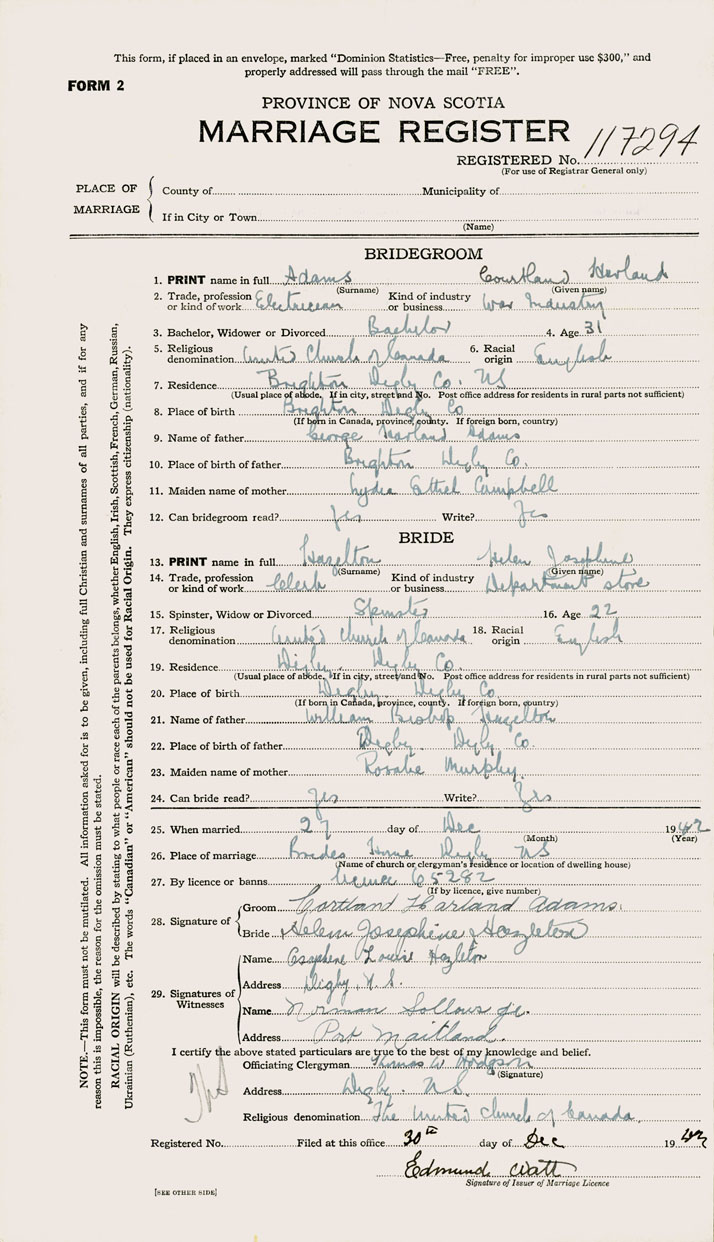 This form, if placed in an envelope, marked "Dominion Statistics—Free, penalty for improper use $300," and
properly addressed will pass through the mail "FREE".
FORM 2
PROVINCE OF NOVA SCOTIA
MARRIAGE REGISTER
REGISTERED No. 117294
(For use of Registrar General only)
PLACE OF MARRIAGE
County of Municipality of
If in City or Town
(Name)
BRIDEGROOM
1. PRINT name in full Adams Courtland Harland
(Surname) (Given name)
2. Trade, profession or kind of work Electrician Kind of industry or business War Industry
3. Bachelor, Widower or Divorced Bachelor 4. Age 31
5. Religious denomination United Church of Canada 6. Racial origin English
7. Residence Brighton Digby Co. NS
(Usual place of abode. If in city, street and No. Post office address for residents in rural parts not sufficient)
8. Place of birth Brighton Digby Co
(If born in Canada, province, county. If foreign born, country)
9. Name of father George Harland Adams
10. Place of birth of father Brighton Digby Co.
11. Maiden name of mother Lydia Ethel Campbell
12. Can bridegroom read? Yes Write? Yes
BRIDE
13. PRINT name in full Hazelton Helen Josephine
(Surname) (Given name)
14. Trade, profession or kind of work Clerk Kind of industry or business Department store
15. Spinster, Widow or Divorced Spinster 16. Age 22
17. Religious denomination United Church of Canada 18. Racial origin English
19. Residence Digby. Digby Co.
(Usual place of abode. If in city, street and No. Post office address for residents in rural parts not sufficient)
20. Place of birth Digby. Digby Co
(If born in Canada, province, county. If foreign born, country)
21. Name of father William Bishop Hazelton
22. Place of birth of father Digby. Digby Co.
23. Maiden name of mother Rosalie Murphy.
24. Can bride read? Yes Write? Yes
25. When married 27 day of Dec 1942
(Month) (Year)
26. Place of marriage Brides Home Digby NS
(Name of church or clergyman's residence or location of dwelling house)
27. By licence or banns licence 65282
(If by licence, give number)
28. Signature of
Groom Cortland Harland Adams.
Bride Helen Josephine Hazleton
29. Signatures of Witnesses
Name Louise Hazleton
Address Digby, N.S.
Name Norman Sollows jr.
Address Port Maitland.
I certify the above stated particulars are true to the best of my knowledge and belief.
Officiating Clergyman Thomas W Hodgson
(Signature)
Address Digby. NS.
Religious denomination The United Church of Canada.
Registered No. Filed at this office 30th day of Dec 1942
Edmund Watt
Signature of Issuer of Marriage Licence
[SEE OTHER SIDE]
NOTE.—This form must not be mutilated. All information asked for is to be given, including full Christian and surnames of all parties, and if for any
reason this is impossible, the reason for the omission must be stated.
RACIAL ORIGIN will be described by stating to what people or race each of the parents belongs, whether English, Irish, Scottish, French, German, Russian,
Ukrainian (Ruthenian), etc. The words "Canadian" or "American" should not be used for Racial Origin. They express citizenship (nationality).